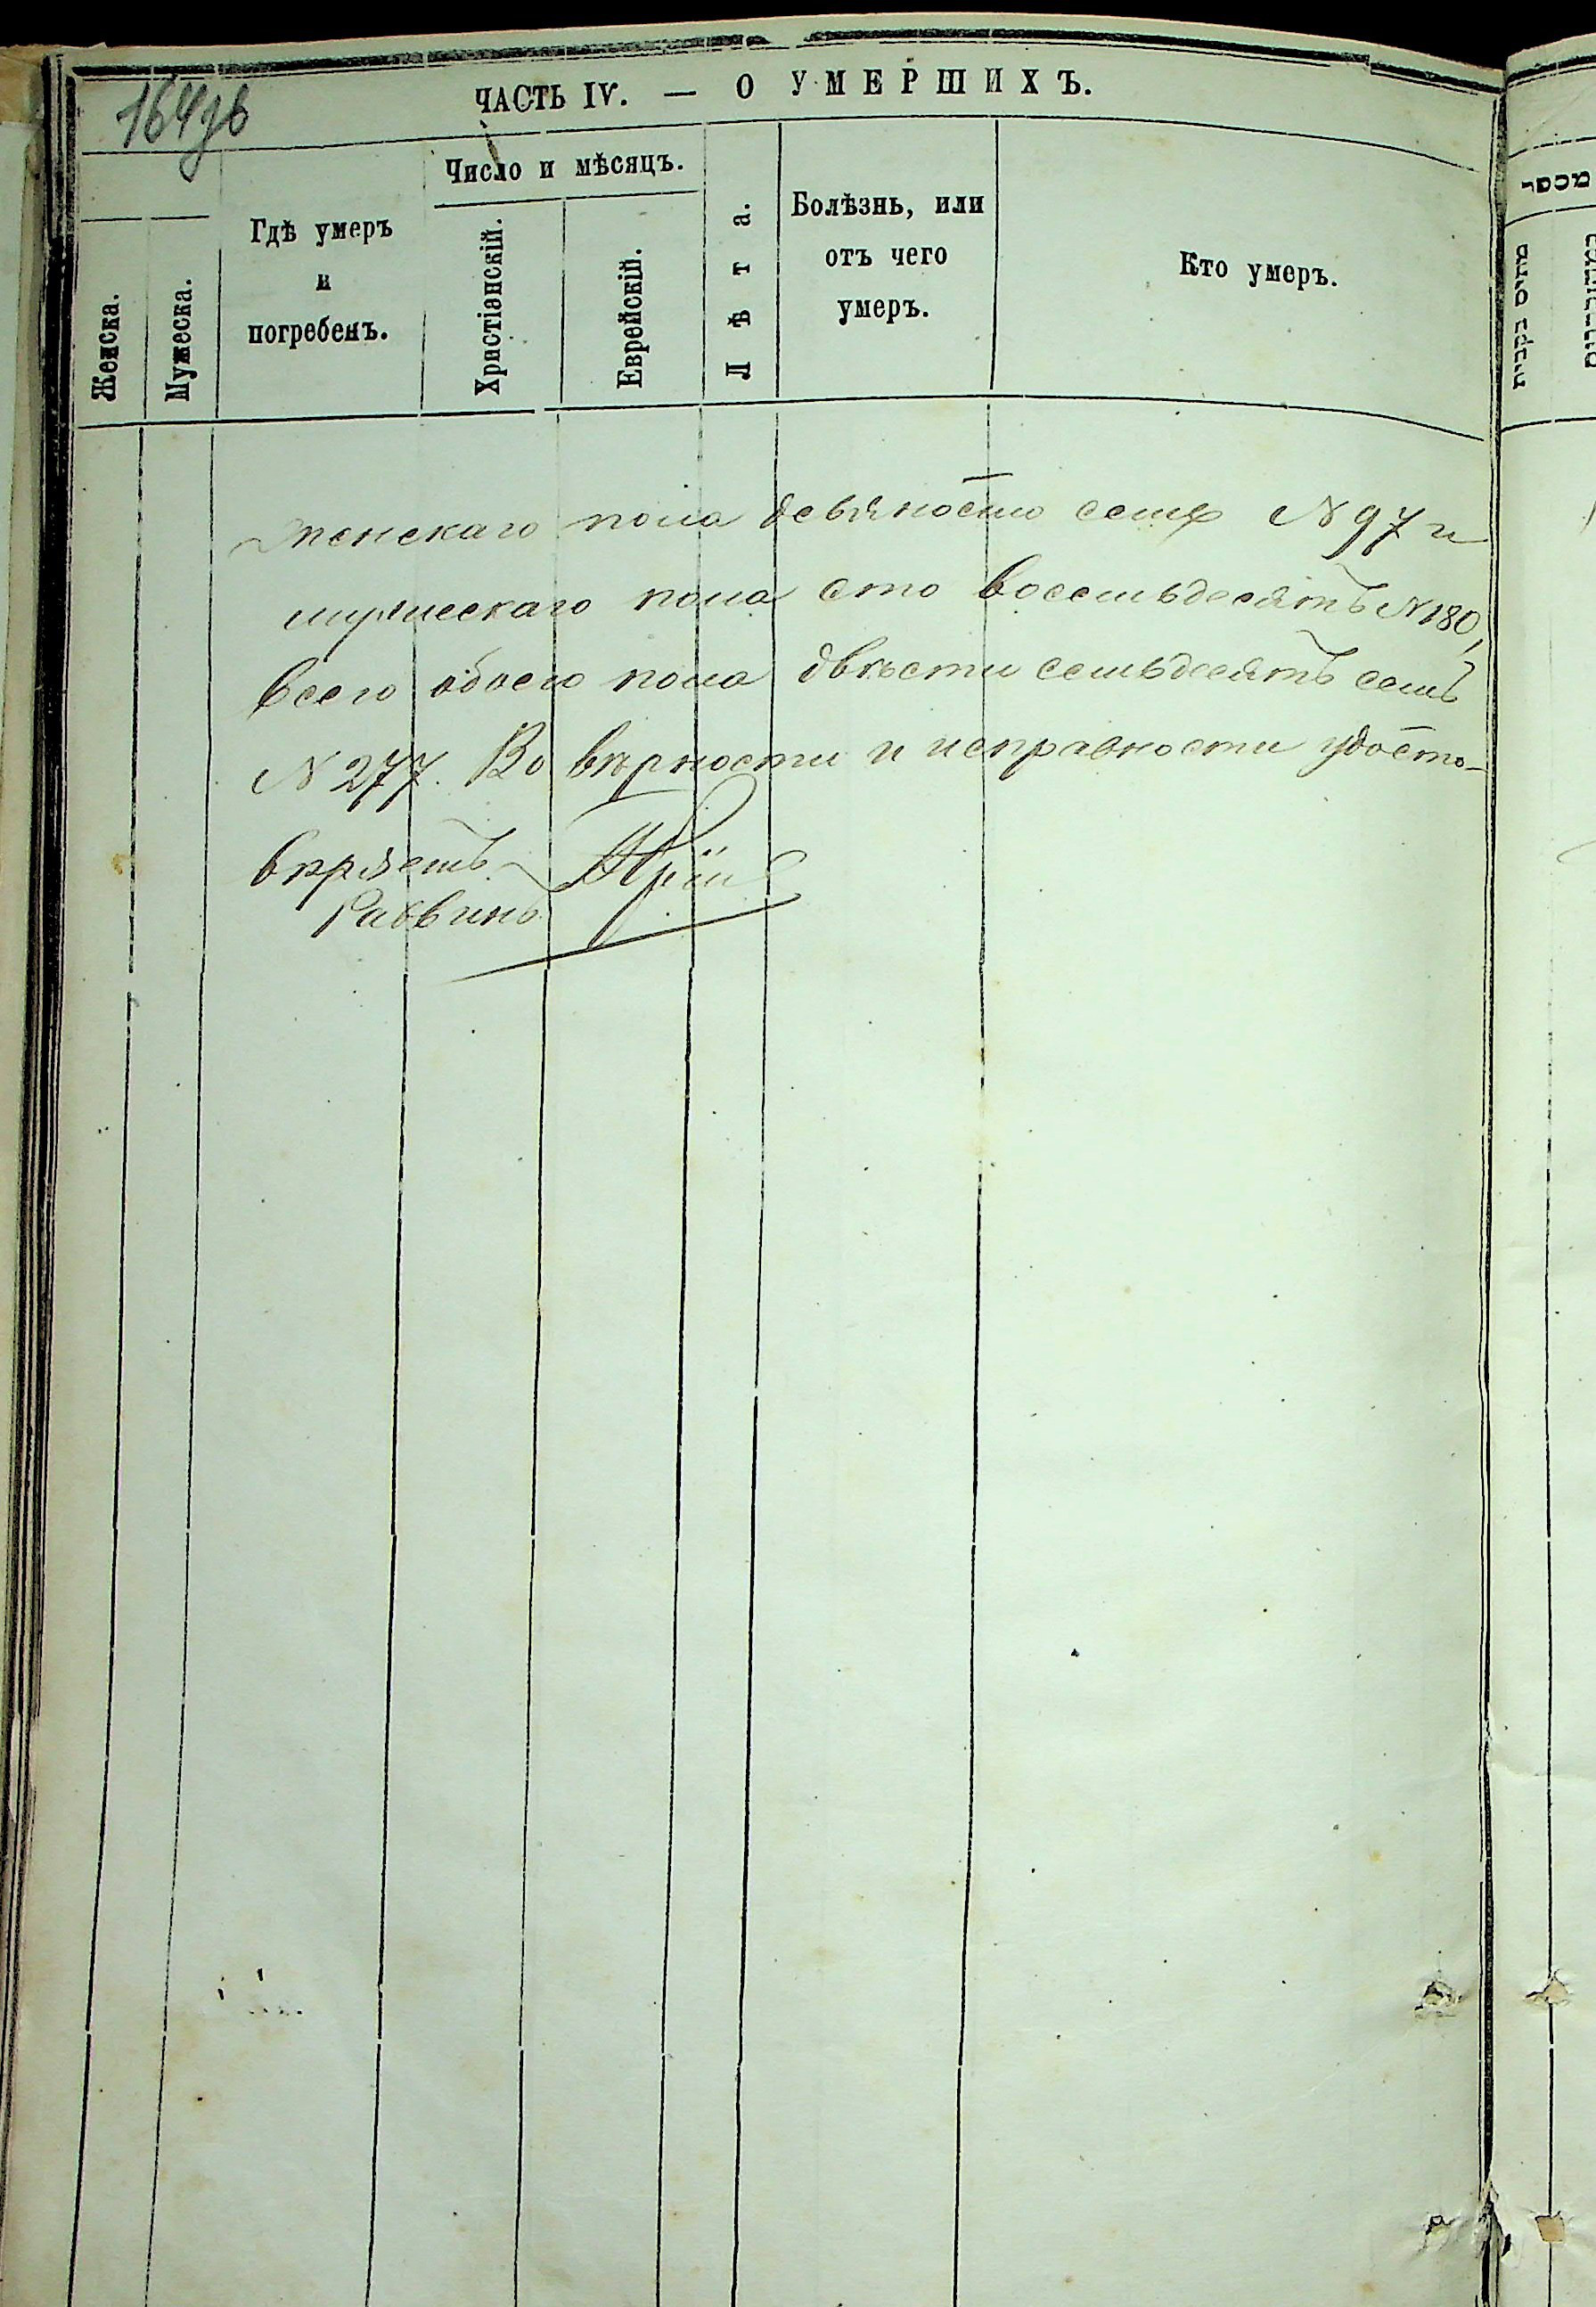 164зв
ЧАСТЬ IV. — О УМЕРШИХЪ.
Женска.
Мужеска.
Гдѣ умеръ
и
погребенъ.
Число и мѣсяцъ.
Христіанскій.
Еврейскій.
Лѣта.
Болѣзнь, или
отъ чего
умеръ.
Кто умеръ.
женскаго пола девяносто семь N 97 и
мужескаго пола сто восемьдесятъ N 180,
всего обоего пола двѣсти семьдесятъ семь
N 277. Во вѣрности и исправности удосто-
вѣряетъ
Раввинъ
מספר